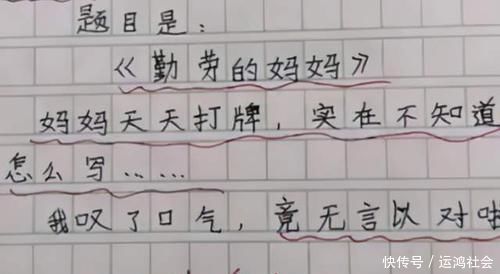 题目是：
《勤劳的妈妈》
妈妈天天打牌，实在不知道
怎么写……
我叹了口气，竟无言以对
快传号/运鸿社会